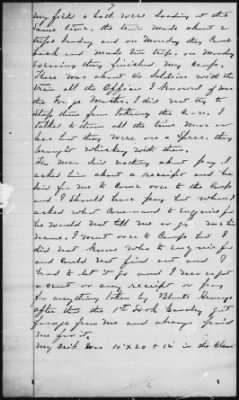 my field & both were loading at the
same time. the train made about 2
trips Sunday and on Monday they came
back and made two trips. on Monday
evening they finished my corn.
There was about 40 Soldiers with the
train all the Officer I knowed of was
the Forage Master. I did not try to
stop them from taking the corn. I
talked to them all the time more or
less but they were on a spree. they
brought whiskey with them.
The man said nothing about pay. I
asked him about a receipt and he
said for me to come over to the Camp
and I should have pay but when I
asked what Command to enquire for
he would not tell me or give me the
name. I went over to Camp but I
did not know who to enquire for
and could not find out and I
had to let it go and I never got
a cent or any receipt or pay
for anything taken by
after this the 1st Cavalry got
forage from me and always paid
me for it.
My Crib was 10 x 20 & 12 in the Clear